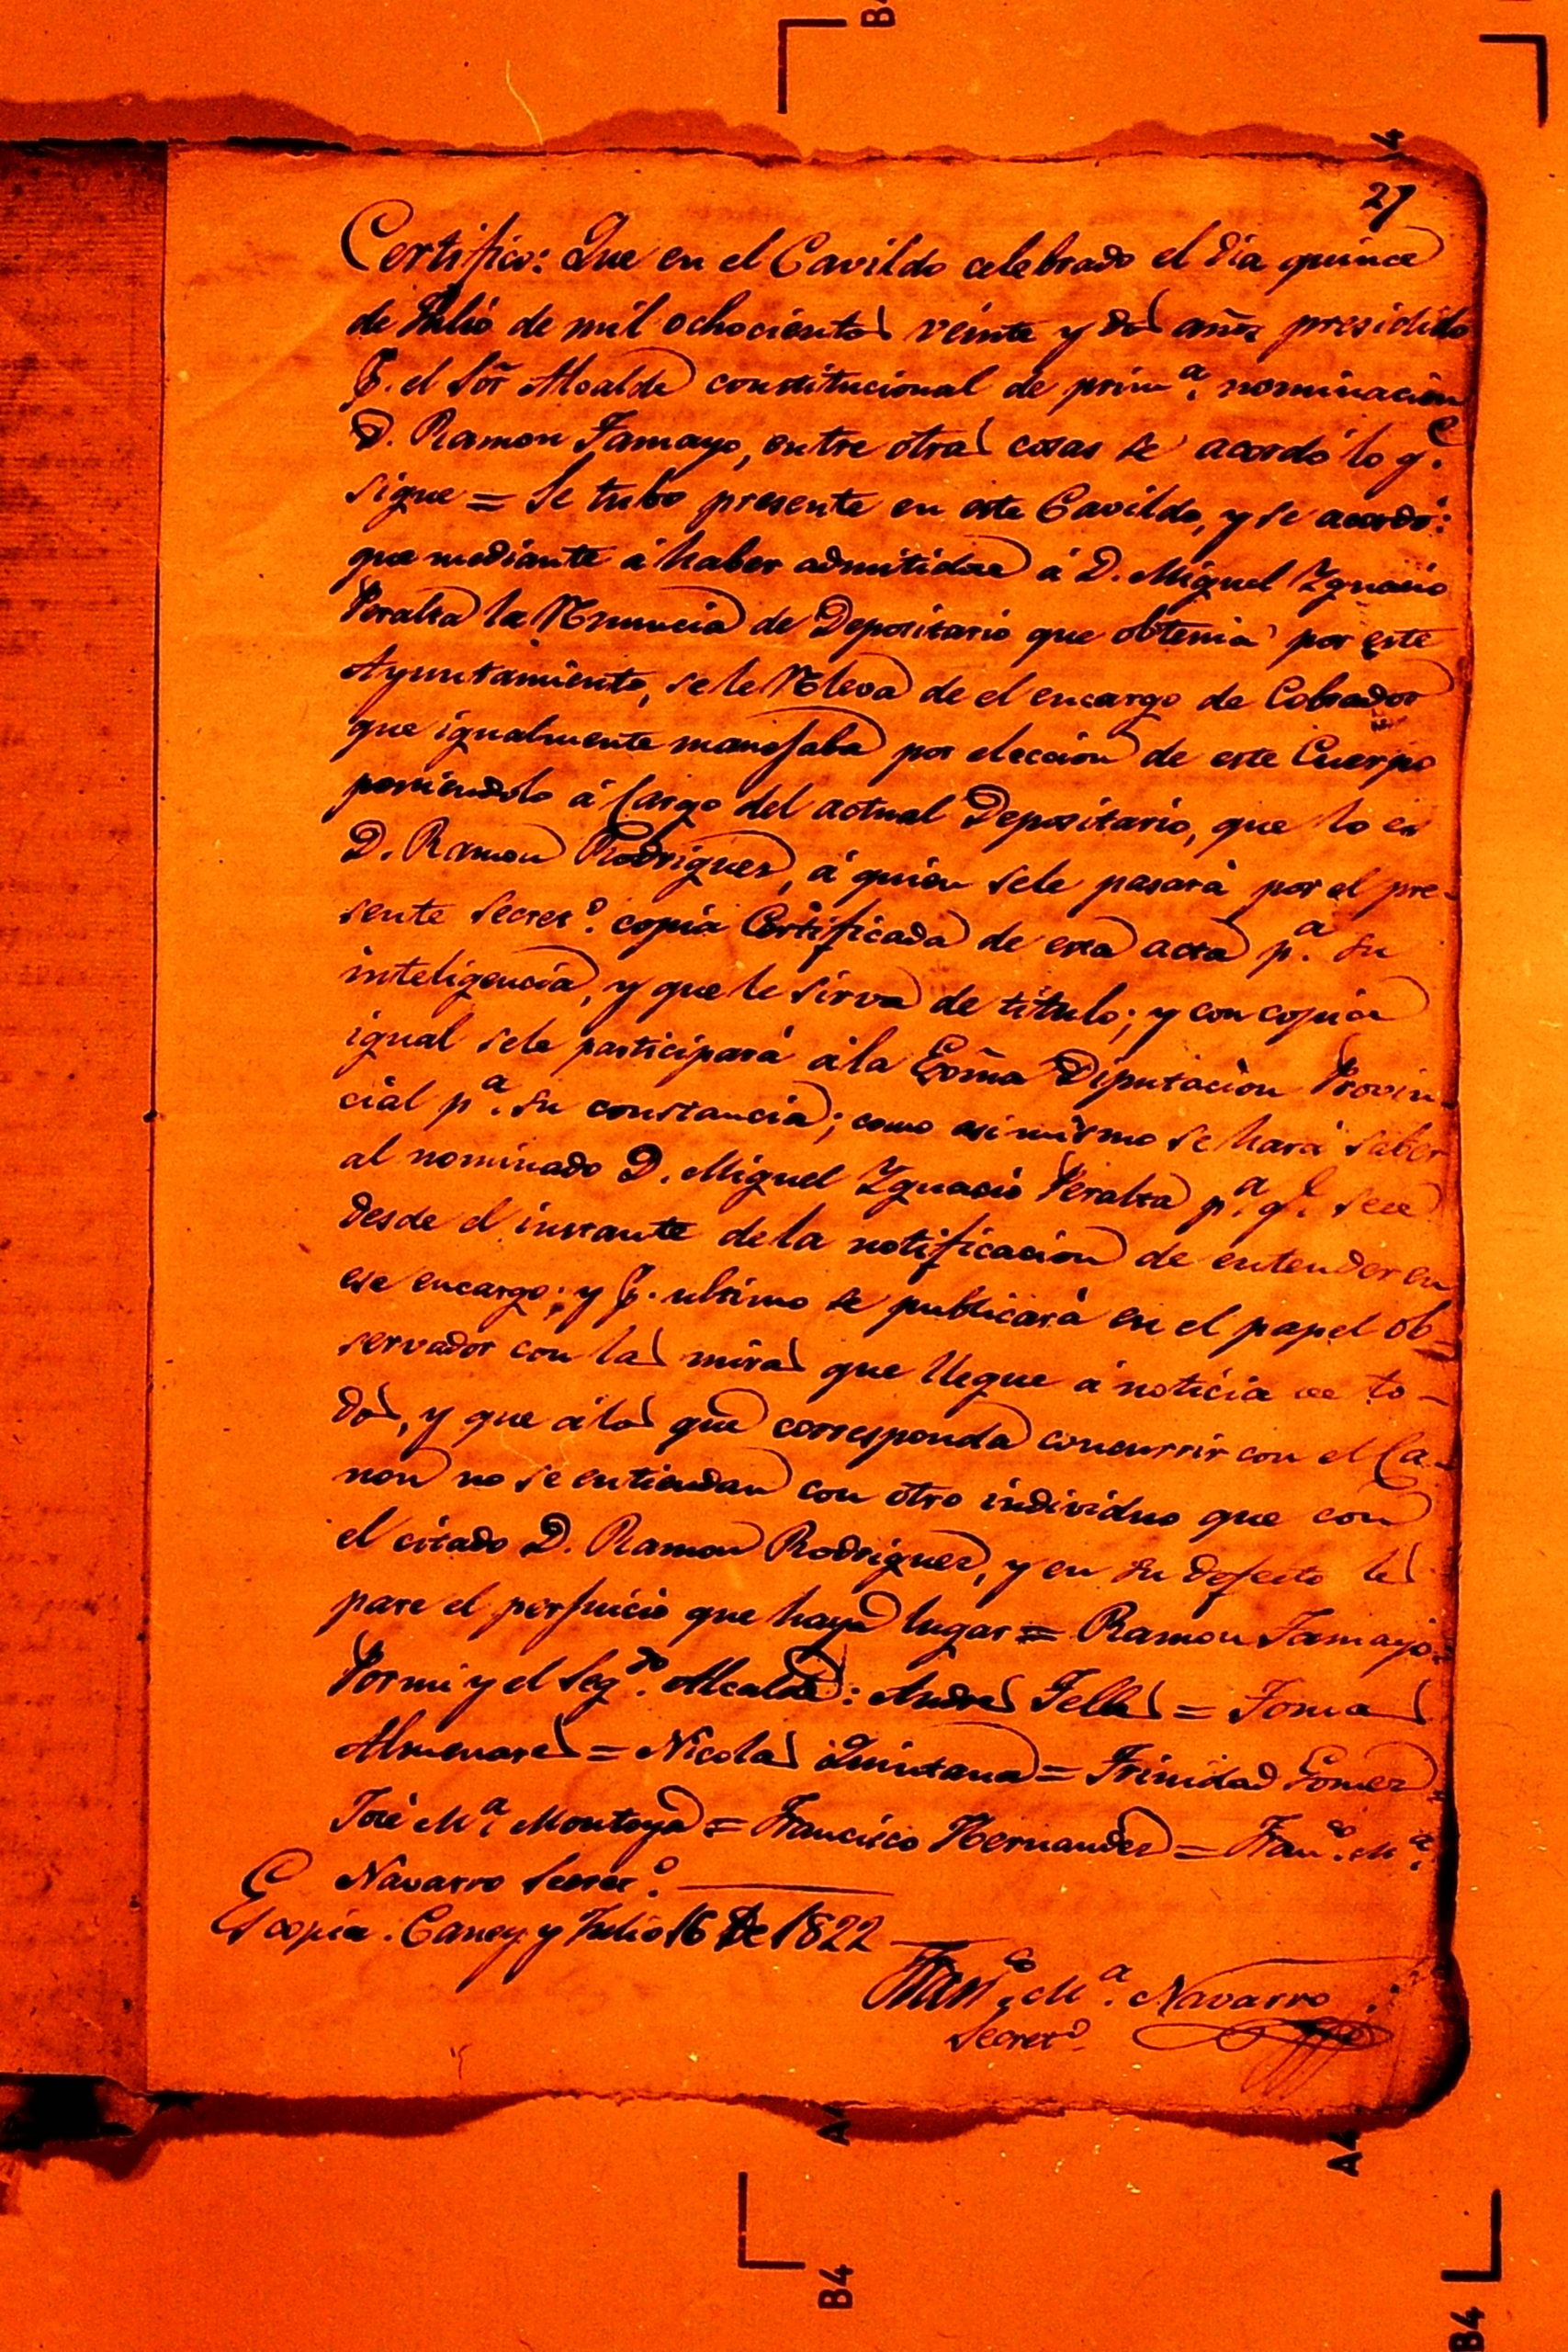 27
Certifico: Que en el Cavildo celebrado el dia quince
de Julio de mil ochocientos veinte y dos años presidido
p. el Sor Alcalde constitucional de prim.a nominacion
D. Ramon Tamayo, entre otras cosas se acordó lo q.e
sigue = Se tubo presente en este Cavildo, y se acordó:
que mediante á haber admitidose á D. Miguel Ygnacio
Peralta la Renuncia de Depositario que obtenia por este
Ayuntamiento, se le Releva de el encargo de Cobrador
que igualmente manejaba por eleccion de este Cuerpo
poniendolo á Cargo del actual Depositario, que lo es
D. Ramon Rodriguez, á quien sele pasará por el pre-
sente Secret.o copia Certificada de esta acta p.a su
inteligencia, y que le sirva de titulo; y con copia
igual sele participará á la Exma Diputacion Provin-
cial p.a su constancia; como asi mismo se hará saber
al nominado D. Miguel Ygnacio Peralta p.a q.e sece
desde el instante de la notificacion de entender en
ese encargo; y p. ultimo se publicará en el papel ob-
servador con las miras que llegue á noticia de to-
dos, y que á los que corresponda concurrir con el Ca-
non no se entiendan con otro individuo que con
el citado D. Ramon Rodriguez, y en su defecto les
pare el perjuicio que haya lugar = Ramon Tamayo =
Por mi y el Seg.do Alcalde: Andres Telles = Tomas
Almenares = Nicolas Quintana = Trinidad Gomez
José M.a Montoya = Francisco Hernandez = Fran.co M.a
Navarro Secret.o
Es copia. Caney y Julio 16 de 1822
Fran.co M.a Navarro
Secret.o
B4
A4
A4
B4
B4